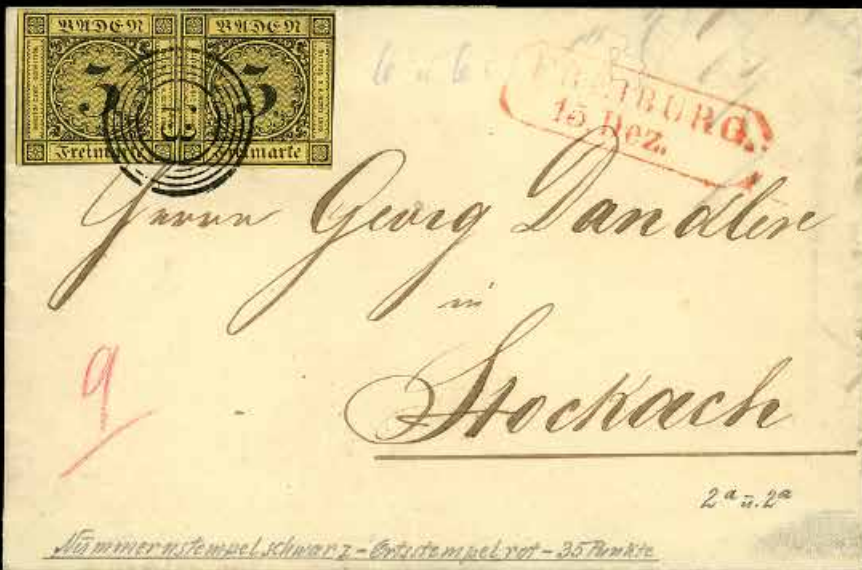 BADEN BADEN
3 3
Freimarke Freimarke
FREIBURG.
15 Dez.
Herrn Georg Dandler
in
Stockach
9
2ᵃ u. 2ᵃ
Nummernstempel schwarz - Ortsstempel rot - 35 Punkte